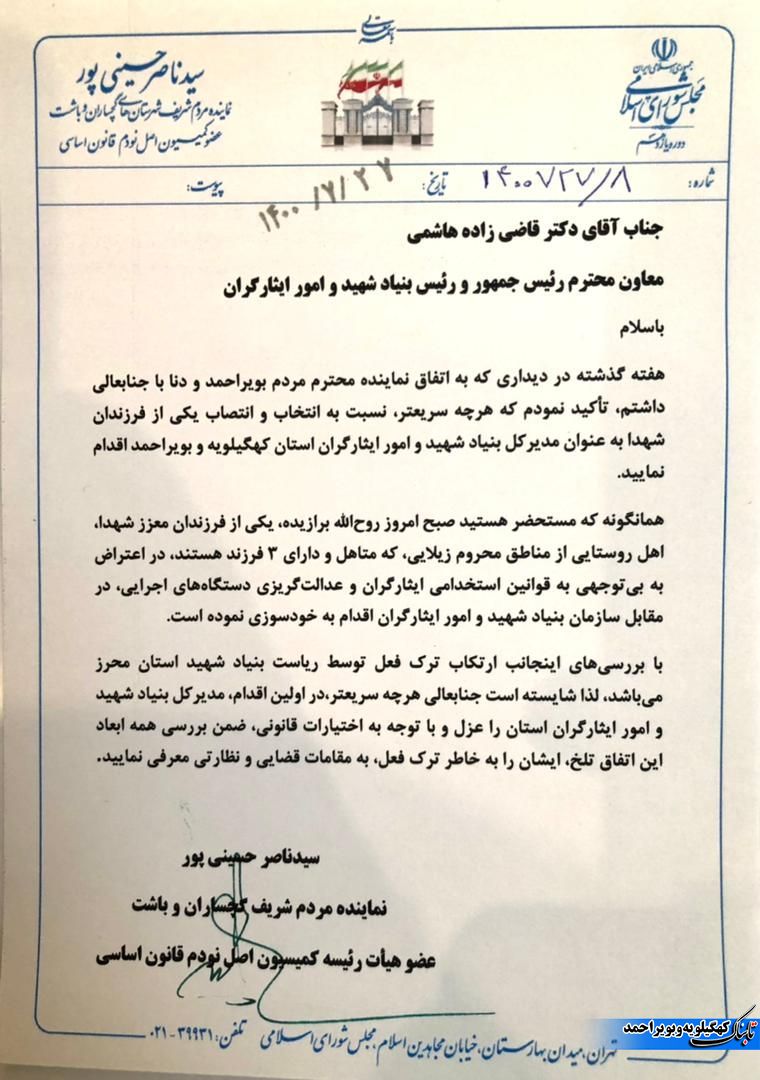 باسمه تعالی
جمهوری اسلامی ایران
مجلس شورای اسلامی
دوره یازدهم
سیدناصر حسینی پور
نماینده مردم شریف شهرستان های گچساران و باشت
عضو کمیسیون اصل نودم قانون اساسی
شماره: ۱۴۰۰۷۲۷/۸
تاریخ: ۱۴۰۰/۷/۲۷
پیوست:
جناب آقای دکتر قاضی زاده هاشمی
معاون محترم رئیس جمهور و رئیس بنیاد شهید و امور ایثارگران
باسلام
هفته گذشته در دیداری که به اتفاق نماینده محترم مردم بویراحمد و دنا با جنابعالی
داشتم، تأکید نمودم که هرچه سریعتر، نسبت به انتخاب و انتصاب یکی از فرزندان
شهدا به عنوان مدیرکل بنیاد شهید و امور ایثارگران استان کهگیلویه و بویراحمد اقدام
نمایید.
همانگونه که مستحضر هستید صبح امروز روح‌الله برازیده، یکی از فرزندان معزز شهدا،
اهل روستایی از مناطق محروم زیلایی، که متاهل و دارای ۳ فرزند هستند، در اعتراض
به بی‌توجهی به قوانین استخدامی ایثارگران و عدالت‌گریزی دستگاه‌های اجرایی، در
مقابل سازمان بنیاد شهید و امور ایثارگران اقدام به خودسوزی نموده است.
با بررسی‌های اینجانب ارتکاب ترک فعل توسط ریاست بنیاد شهید استان محرز
می‌باشد، لذا شایسته است جنابعالی هرچه سریعتر،در اولین اقدام، مدیرکل بنیاد شهید
و امور ایثارگران استان را عزل و با توجه به اختیارات قانونی، ضمن بررسی همه ابعاد
این اتفاق تلخ، ایشان را به خاطر ترک فعل، به مقامات قضایی و نظارتی معرفی نمایید.
سیدناصر حسینی پور
نماینده مردم شریف گچساران و باشت
عضو هیأت رئیسه کمیسیون اصل نودم قانون اساسی
تهران، میدان بهارستان، خیابان مجاهدین اسلام، مجلس شورای اسلامی تلفن: ۳۹۹۳۱-۰۲۱
تابناک کهگیلویه و بویراحمد